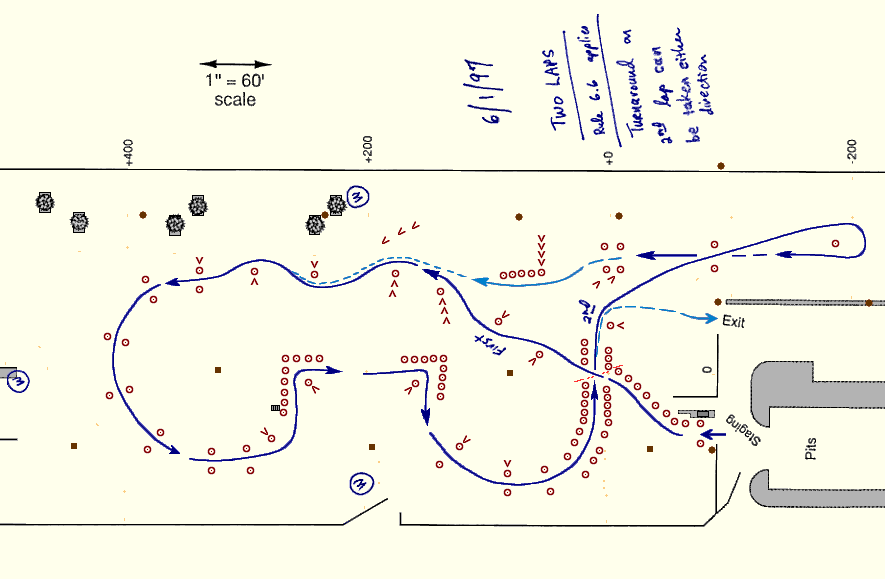 1" = 60'
scale
6/1/97
TWO LAPS
Rule 6.6 applies
Turnaround on
2nd lap can
be taken either
direction
+400
+200
+0
-200
W
W
W
First
2nd
Exit
0
Staging
Pits